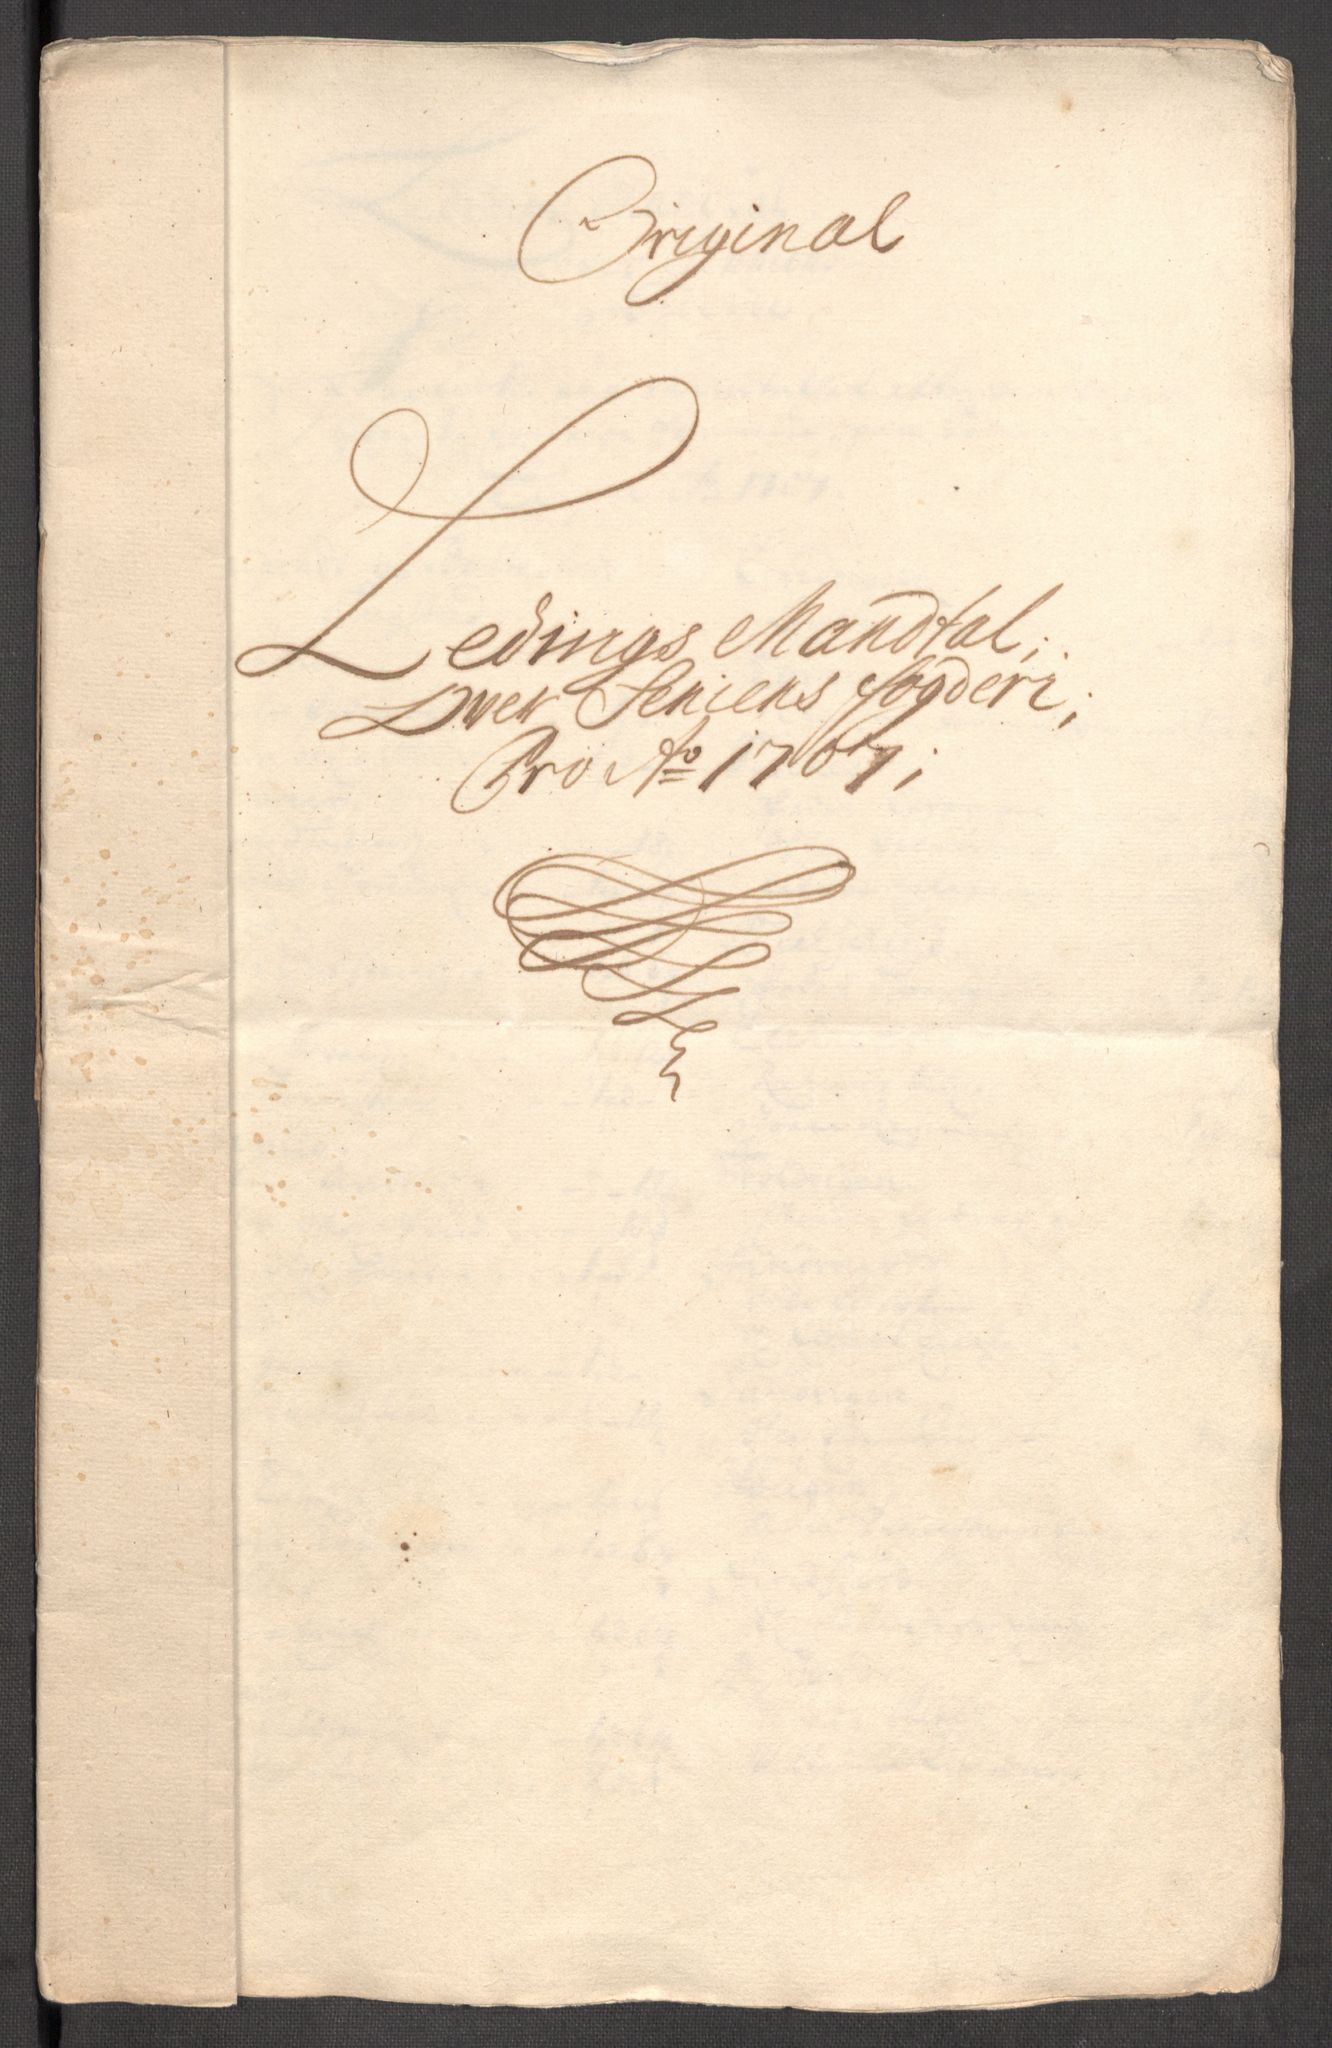 Original
Ledings Mandtal;
Over Seniens fogderi;
Pro Ao 1707;